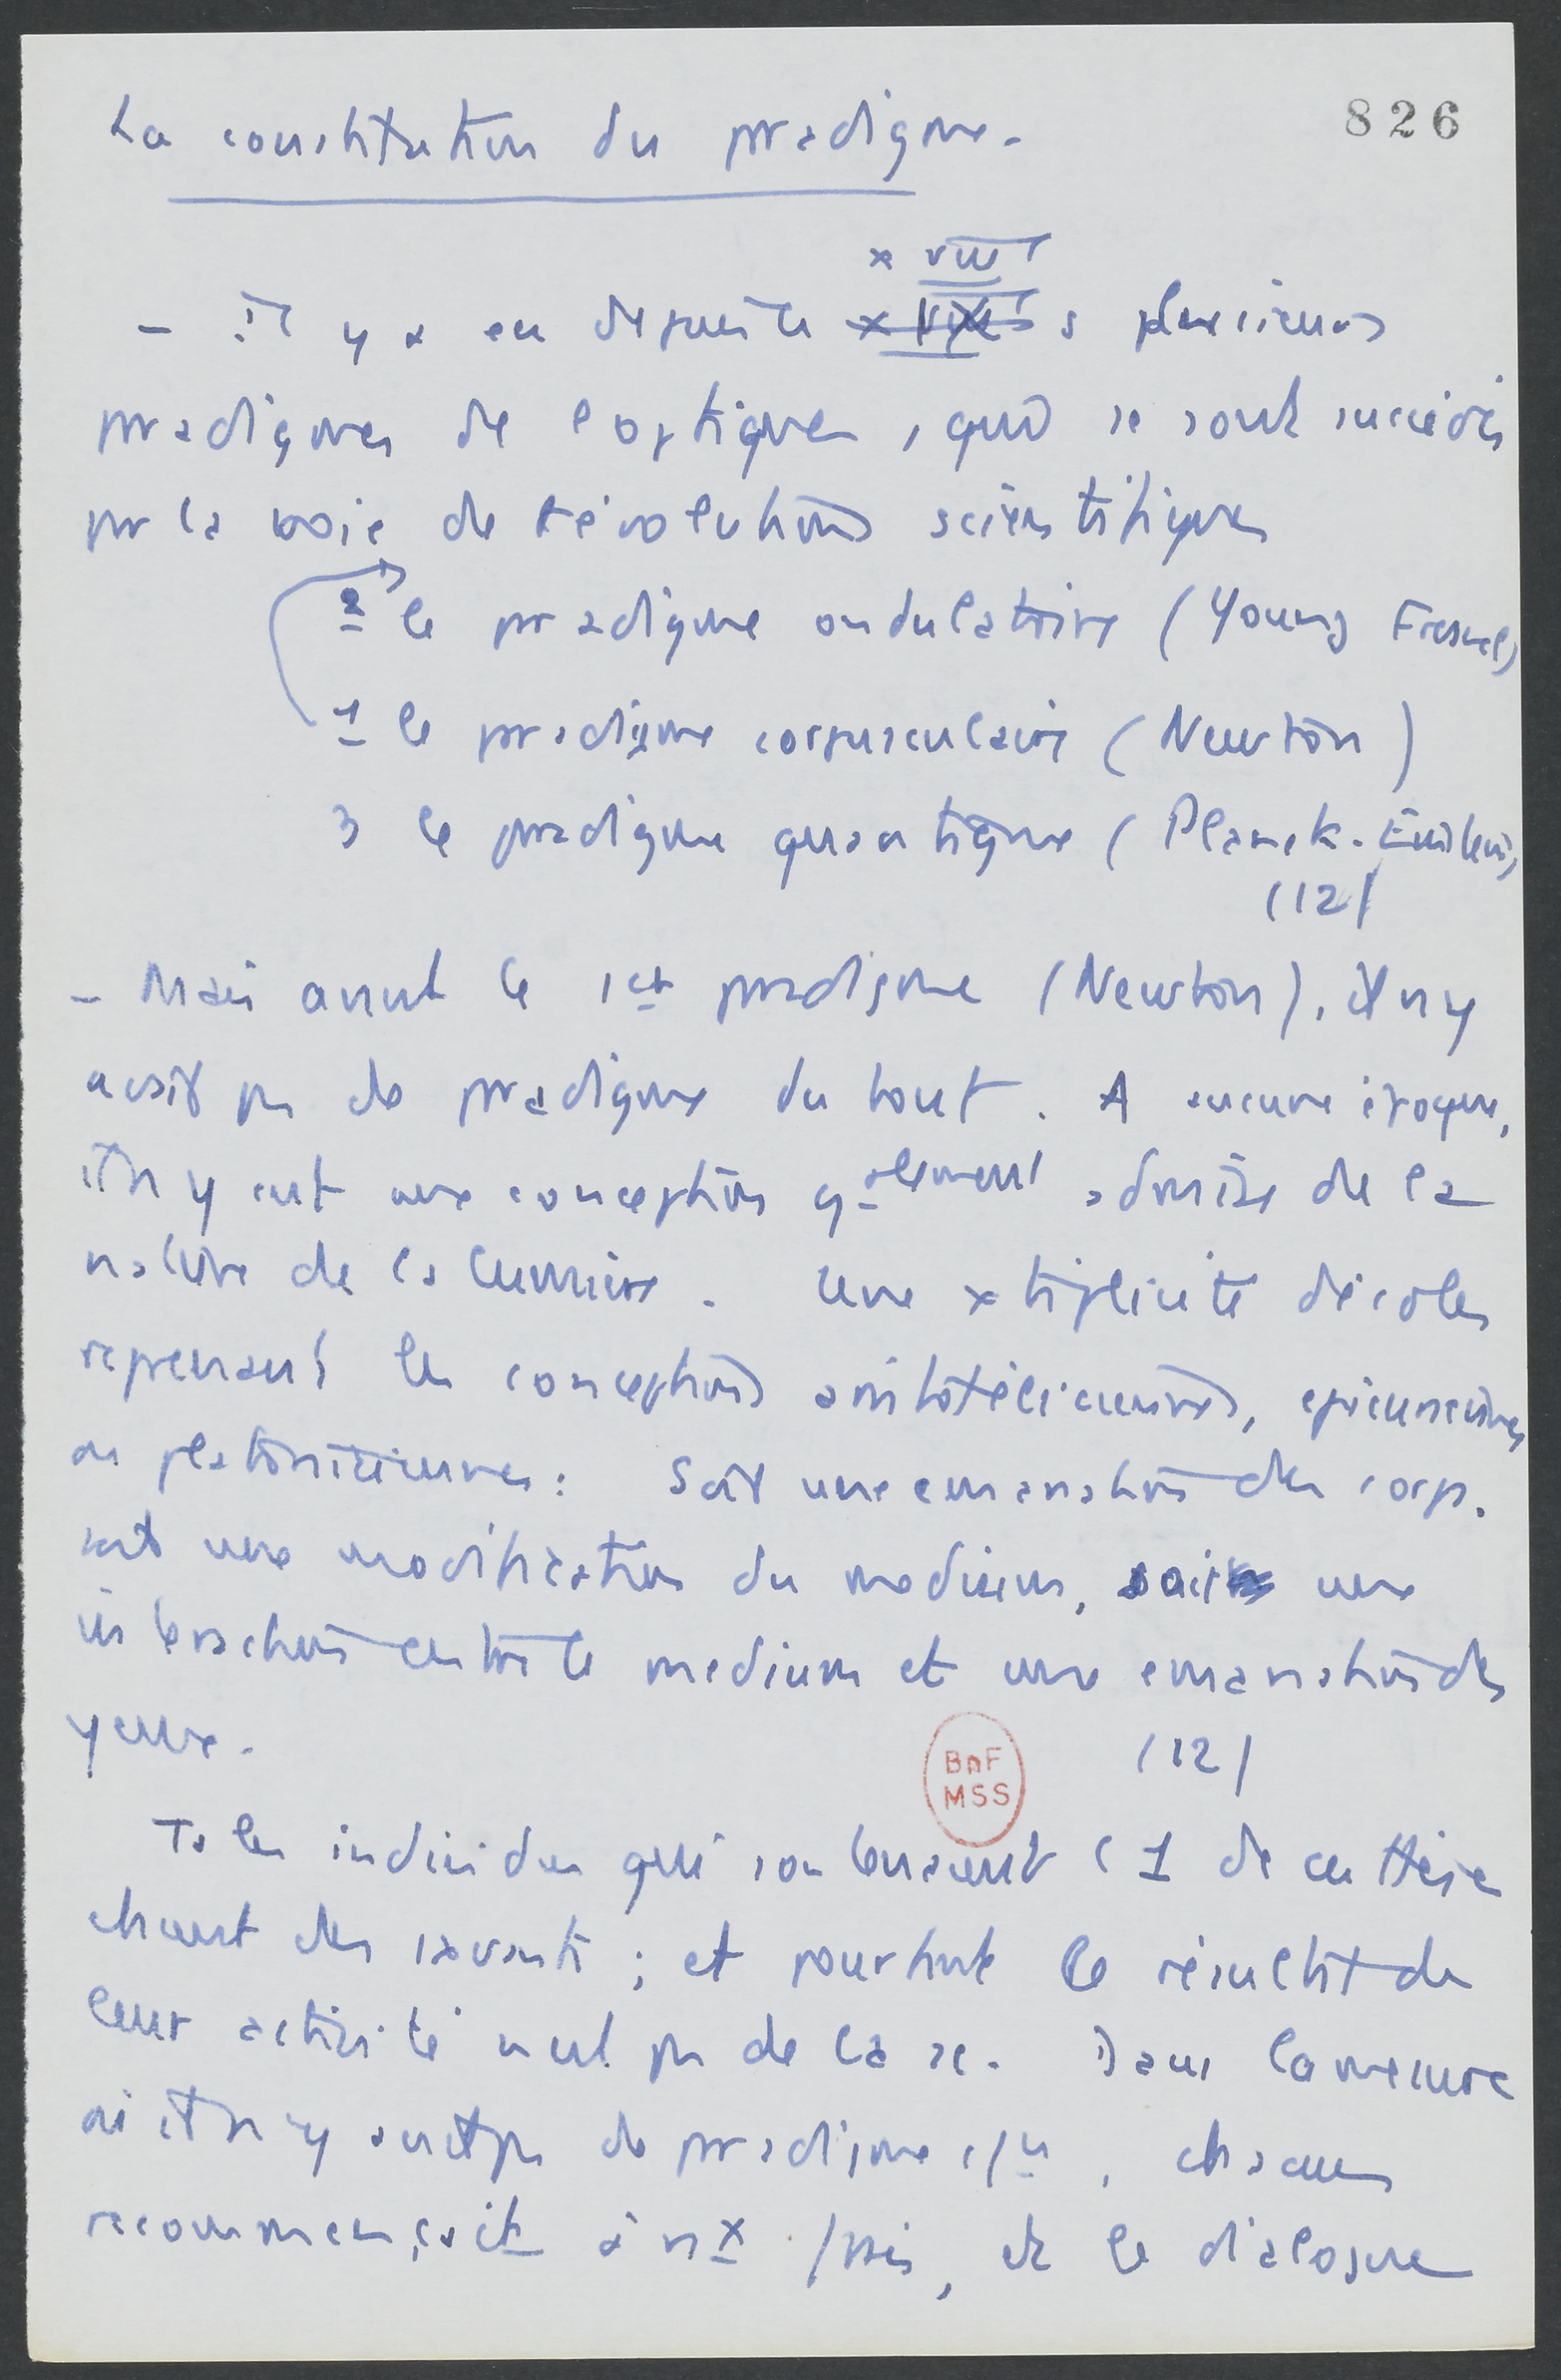 826
La constitution du pradigme.
x VIII
- il y a eu depuis le x VIII s plusieurs
pradigmes de l optique, qui se sont succédés
pr la voie de révolutions scientifiques
2 le pradigme ondulatoire (Young Fresnel)
1 le pradigme corpusculaire (Newton)
3 le pradigme quantique (Planck. Einstein)
(12)
- Mais avant le 1er pradigme (Newton), il n y
avait ps de pradigme du tout. A aucune époque,
il n y eut une conception galement admise de la
nature de la lumière. Une x tiplicité d'écoles
reprenant les conceptions aristotéliciennes, epicuriennes
ou platoniciennes : Soit une emanation des corps.
soit une modification du medium, soit une
interaction entre le medium et une emanation des
yeux.
(12)
BnF
MSS
Ts les individus qui soutenaient l 1 de ces thèses
étaient des savants ; et pourtant le résultat de
leur activité n eut ps de la sc. Dans la mesure
où il n y avait ps de pradigme c/n, chacun
recommençait à nx /
, et le dialogue